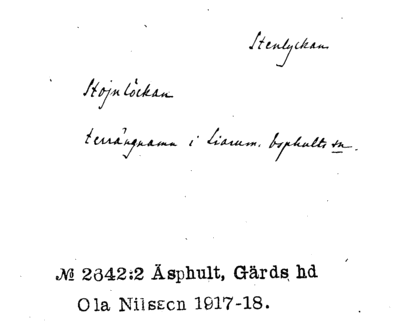 Stenlyckan
Stojnlöckan
terrängnamn i Liarum. Äsphults sn.
№ 2642:2 Äsphult, Gärds hd
Ola Nilsson 1917-18.